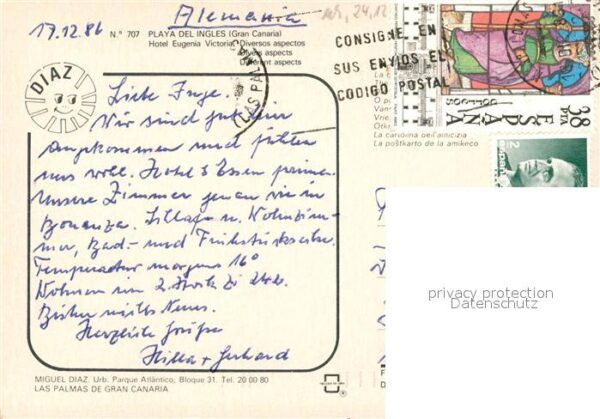 Alemania
17.12.86
N.º 707 PLAYA DEL INGLES (Gran Canaria)
Hotel Eugenia Victoria. Diversos aspectos
aspects
Different aspects
DIAZ
CONSIGNE EN
SUS ENVIOS EL
CODIGO POSTAL
LAS PAL
ESPAÑA
38
PTA
2
La cartolina dell'amicizia
La poŝtkarto de la amikeco
Liebe Inge.
Wir sind gut hier
angekommen und fühlen
uns woll. Hotel & Essen prima.
Unsere Zimmer genau wie in
Bonanza. Schlaf- u. Wohnzim-
mer, Bad- und Frühstücksecke.
Temperatur morgens 16°
Wohnen im 2. Stock Zi 242.
Bisher nichts Neues.
Herzliche Grüße
Hilla + Gerhard
MIGUEL DIAZ. Urb. Parque Atlántico, Bloque 31. Tel. 20 00 80
LAS PALMAS DE GRAN CANARIA
privacy protection
Datenschutz